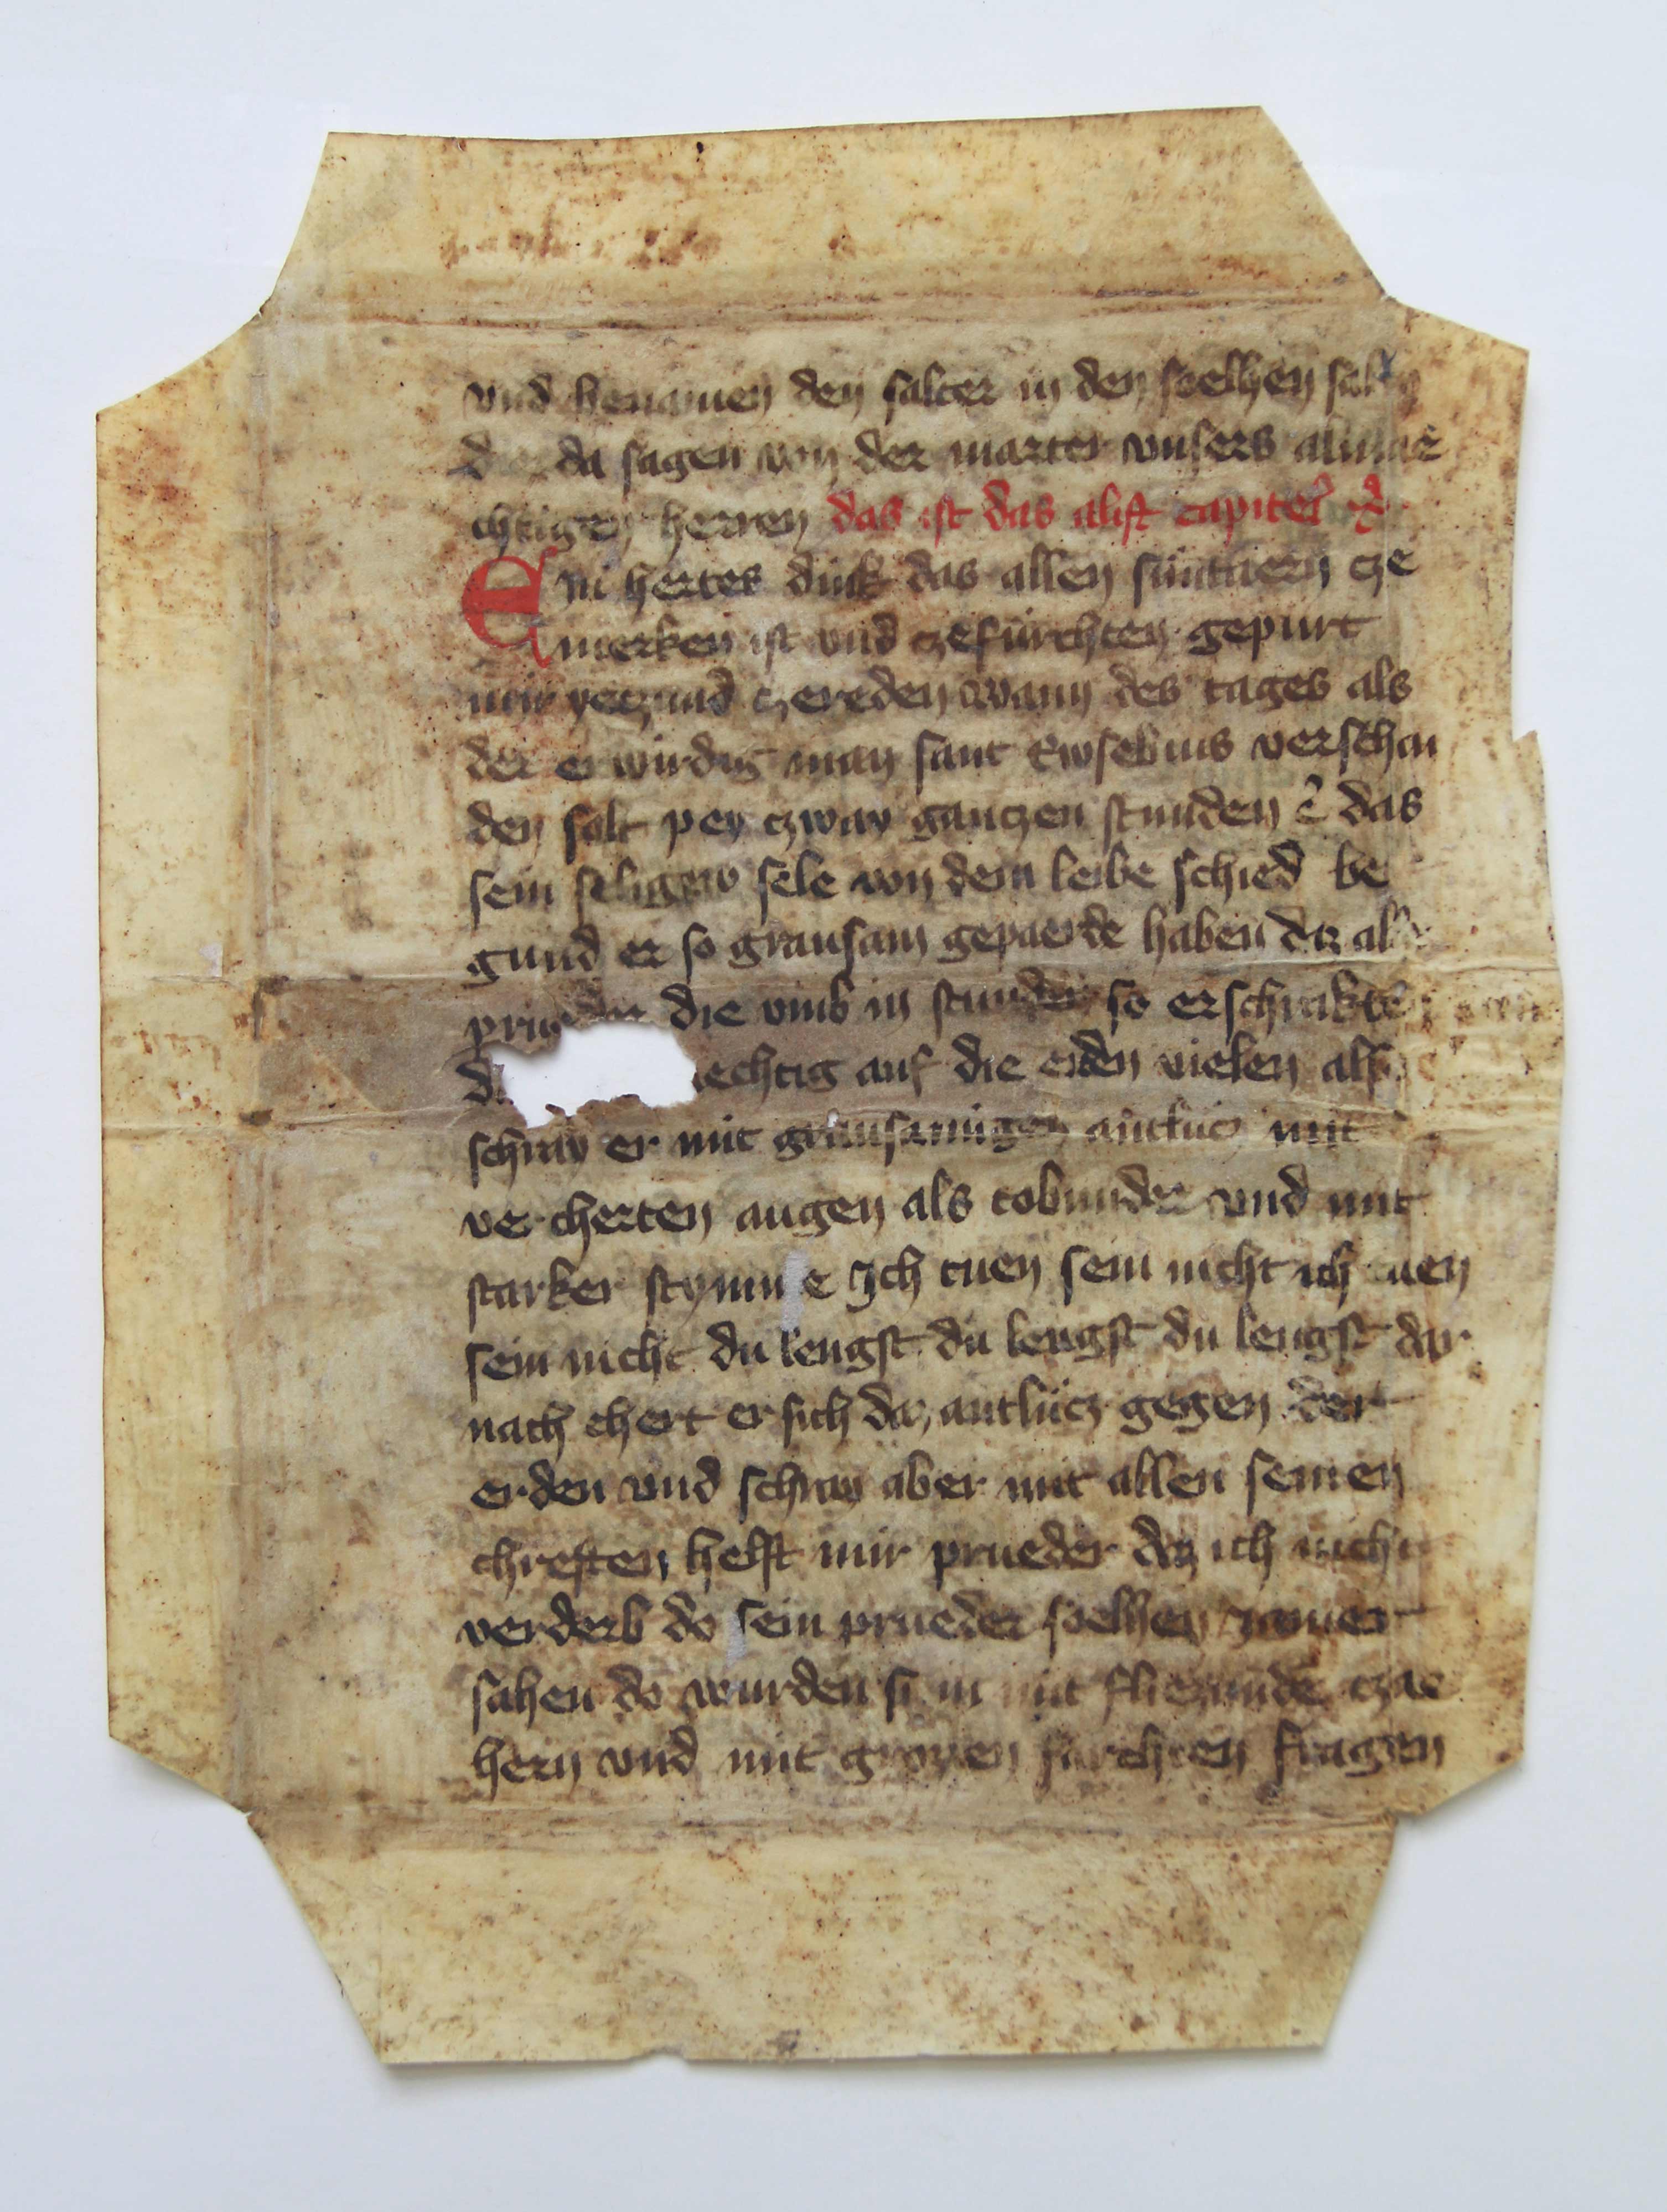 vnd benamen den salter in den soelhen sal
die da sagen von der marter vnsers almae
chtigen herren das ist das alift capitel
Ein hertes dink das allen süntaern cze
merken ist vnd czefürchten gepurt
mir yeczund czereden wann des tages als
der erwirdig man sant Ewsebius verschai
den solt pey czway ganczen stunden e das
sein seligew sele von dem leibe schied be
gund er so grausam gepaerde haben daz alle
prueder die vmb in stunden so erschrakten
d echtig auf die erden vielen als
schray er mit grausamigen antlücz mit
vercherten augen als tobunder vnd mit
starker stymme Ich tuen sein nicht ich tuen
sein nicht du leugst du leugst du leugst dar
nach chert er sich daz antlücz gegen der
erden vnd schray aber mit allen seinen
chreften helft mir prueder daz ich nicht
verderb do sein prueder soelhen jamer
sahen do wurden si in mit fliezunde czae
hern vnd mit grozzen furchten fragen